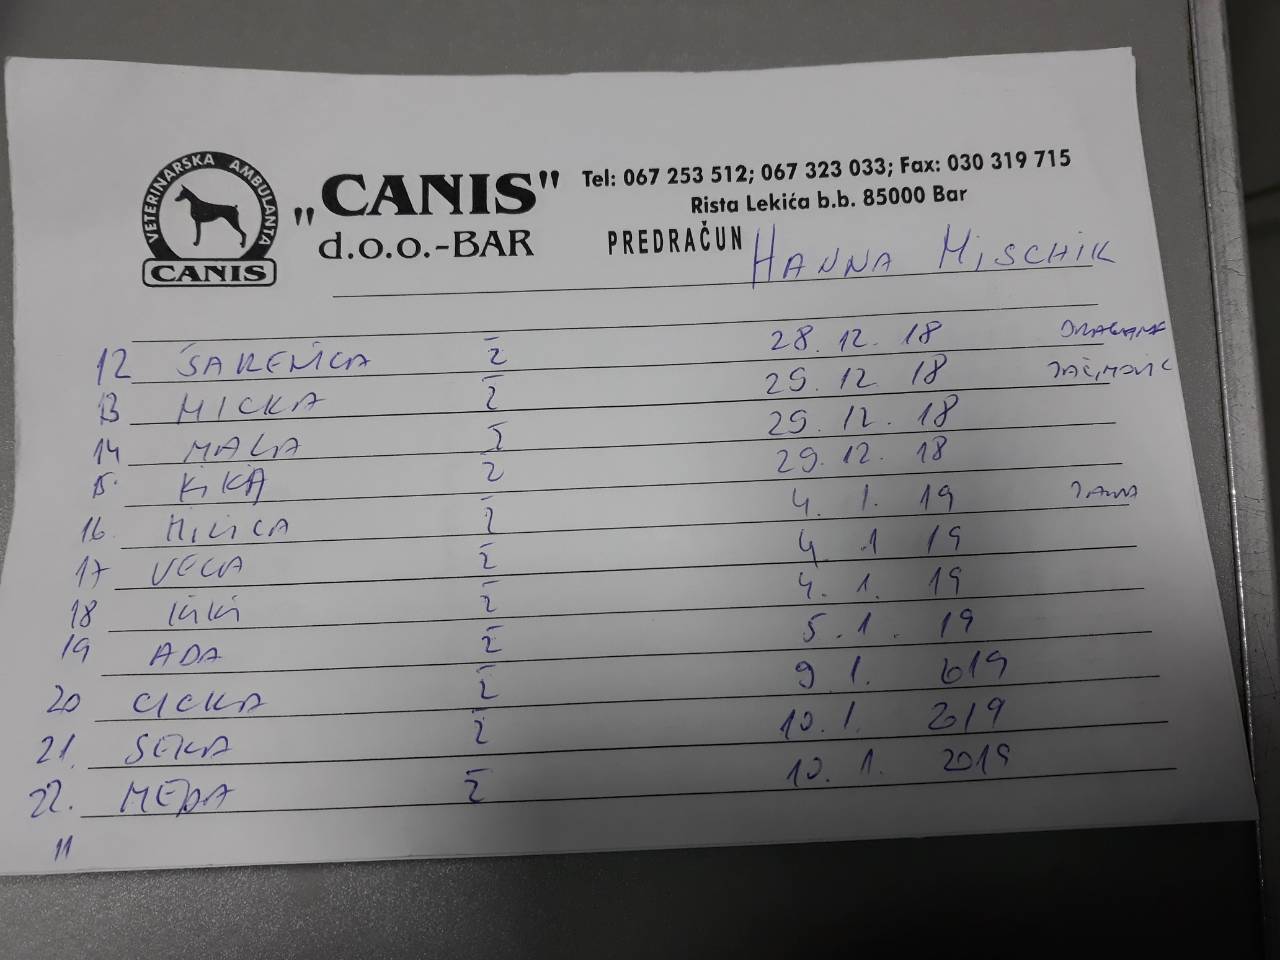 VETERINARSKA AMBULANTA
CANIS
„CANIS"
d.o.o.-BAR
Tel: 067 253 512; 067 323 033; Fax: 030 319 715
Rista Lekića b.b. 85000 Bar
PREDRAČUN HANNA MISCHIK
12 ŠARENICA Ž 28. 12. 18
13 MICKA Ž 29. 12. 18
14 MALA Ž 29. 12. 18
15. KIKA Ž 29. 12. 18
16. MILICA Ž 4. 1. 19
17 VECA Ž 4. 1 19
18 KIKI Ž 4. 1. 19
19 ADA Ž 5. 1. 19
20 CICKA Ž 9 1. 2019
21. SEKA Ž 10. 1. 2019
22. MEDA Ž 10. 1. 2019
11